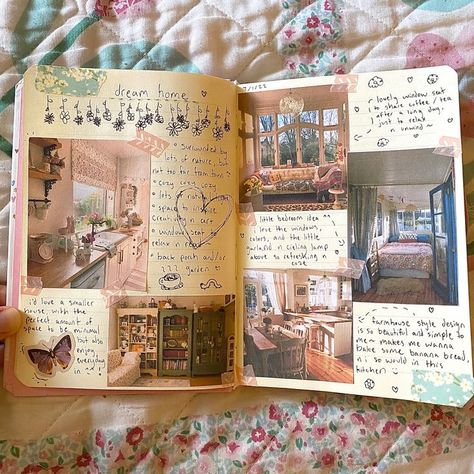 dream home
• surrounded by
lots of nature, but
not too far from town
• cozy cozy cozy
• lots
space to
creativity in
• window seat to
relax n
• back porch and/or
??? garden
i'd love a smaller
house with the
perfect amount of
space to be minimal
but also
enjoy
everyday
in
lovely window seat
to share coffee / tea
after a long day.
just to relax
n unwind
little bedroom idea
i love the windows,
colors, and the little
garland n ceiling lamp
above so refreshing n
cozy
farmhouse style design
is so beautiful and simple to
me ~ makes me wanna
bake some banana bread
n i so would in this
kitchen!